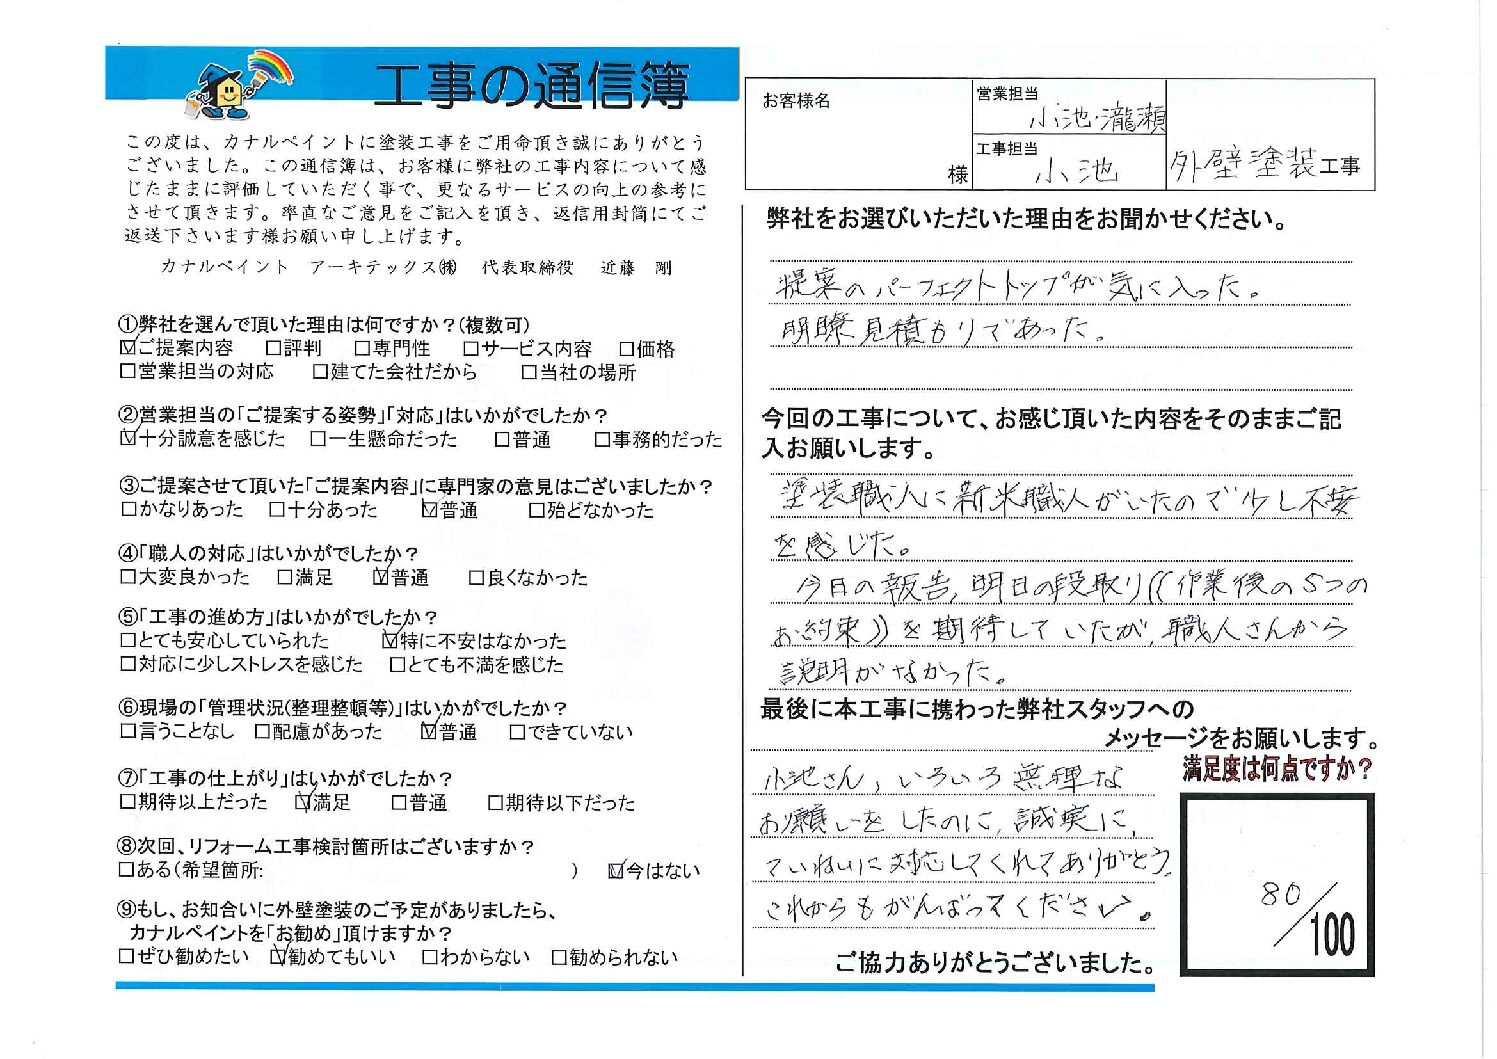 工事の通信簿
この度は、カナルペイントに塗装工事をご用命頂き誠にありがとう
ございました。この通信簿は、お客様に弊社の工事内容について感
じたままに評価していただく事で、更なるサービスの向上の参考に
させて頂きます。率直なご意見をご記入を頂き、返信用封筒にてご
返送下さいます様お願い申し上げます。
カナルペイント アーキテックス㈱ 代表取締役 近藤 剛
①弊社を選んで頂いた理由は何ですか?(複数可)
☑ご提案内容 □評判 □専門性 □サービス内容 □価格
□営業担当の対応 □建てた会社だから □当社の場所
②営業担当の「ご提案する姿勢」「対応」はいかがでしたか?
☑十分誠意を感じた □一生懸命だった □普通 □事務的だった
③ご提案させて頂いた「ご提案内容」に専門家の意見はございましたか?
□かなりあった □十分あった ☑普通 □殆どなかった
④「職人の対応」はいかがでしたか?
□大変良かった □満足 ☑普通 □良くなかった
⑤「工事の進め方」はいかがでしたか?
□とても安心していられた ☑特に不安はなかった
□対応に少しストレスを感じた □とても不満を感じた
⑥現場の「管理状況(整理整頓等)」はいかがでしたか?
□言うことなし □配慮があった ☑普通 □できていない
⑦「工事の仕上がり」はいかがでしたか?
□期待以上だった ☑満足 □普通 □期待以下だった
⑧次回、リフォーム工事検討箇所はございますか?
□ある(希望箇所: ) ☑今はない
⑨もし、お知合いに外壁塗装のご予定がありましたら、
カナルペイントを「お勧め」頂けますか?
□ぜひ勧めたい ☑勧めてもいい □わからない □勧められない
お客様名
様
営業担当
小池・瀧瀬
工事担当
小池
外壁塗装工事
弊社をお選びいただいた理由をお聞かせください。
提案のパーフェクトトップが気に入った。
明瞭見積もりであった。
今回の工事について、お感じ頂いた内容をそのままご記
入お願いします。
塗装職人に新米職人がいたので少し不安
を感じた。
今日の報告,明日の段取り((作業後の5つの
お約束))を期待していたが,職人さんから
説明がなかった。
最後に本工事に携わった弊社スタッフへの
メッセージをお願いします。
小池さん,いろいろ無理な
お願いをしたのに,誠実に,
ていねいに対応してくれてありがとう。
これからもがんばってください。
満足度は何点ですか?
80/100
ご協力ありがとうございました。